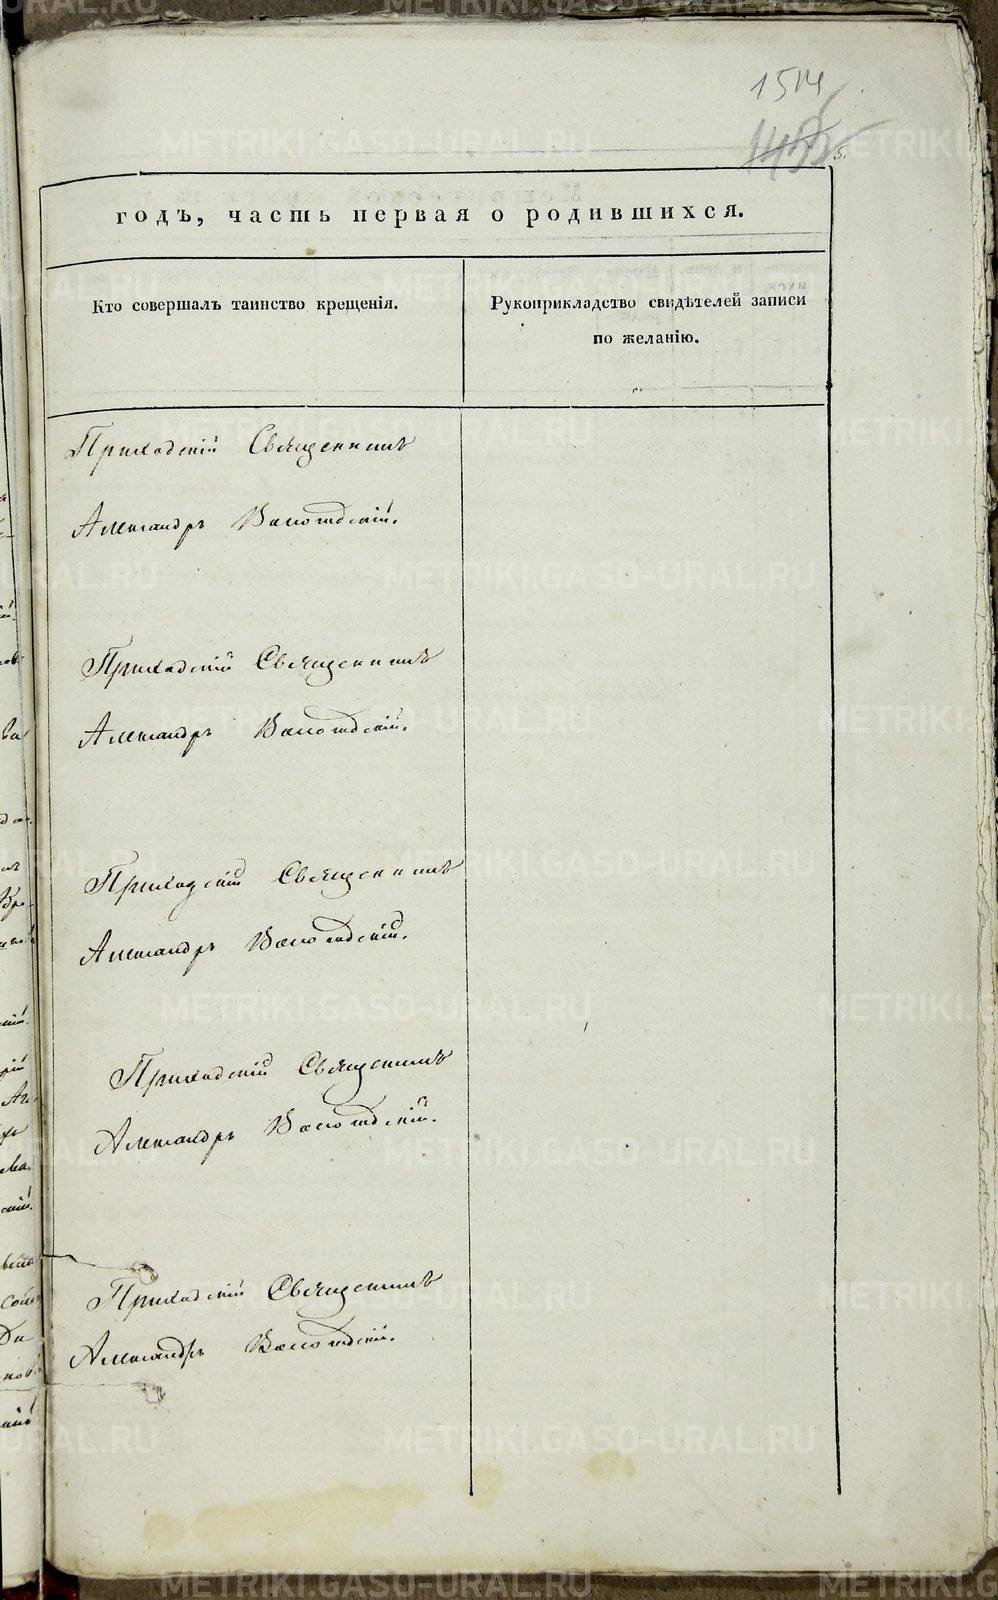 1514
1455
годъ, часть первая о родившихся.
Кто совершалъ таинство крещенія.
Рукоприкладство свидѣтелей записи
по желанію.
Приходскій Священникъ
Александръ Вологодскій.
Приходскій Священникъ
Александръ Вологодскій.
Приходскій Священникъ
Александръ Вологодскій.
Приходскій Священникъ
Александръ Вологодскій.
Приходскій Священникъ
Александръ Вологодскій.
METRIKI.GASO-URAL.RU